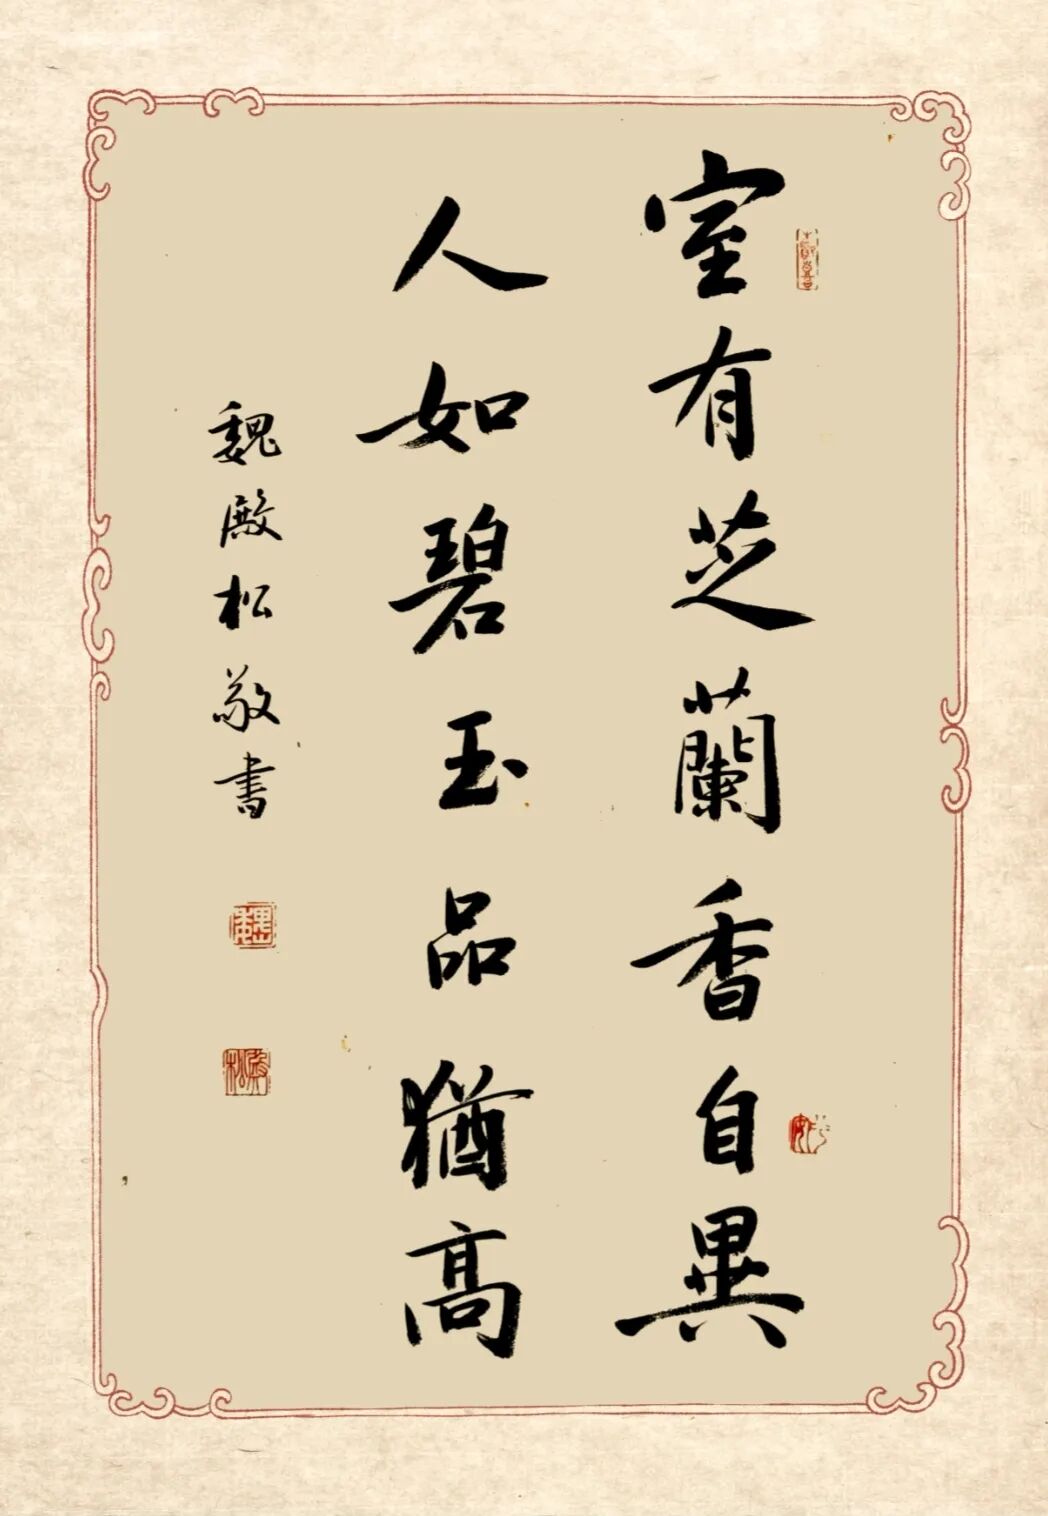 室有芝蘭香自異
人如碧玉品猶高
魏殿松敬書
魏
殿松